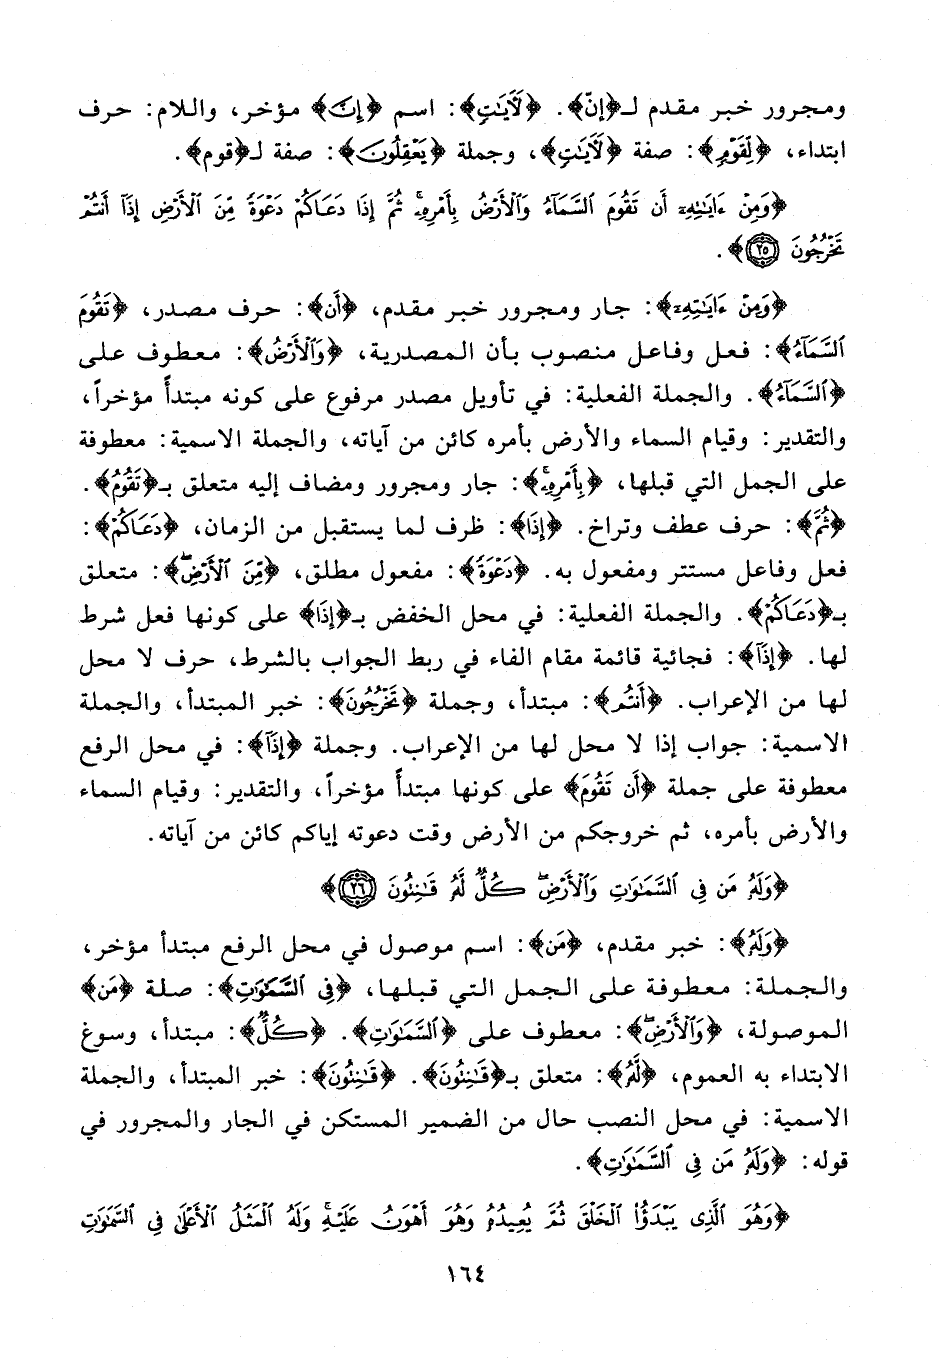 ومجرور خبر مقدم لـ﴿إِنَّ﴾. ﴿لَآيَٰتٍ﴾: اسم ﴿إِنَّ﴾ مؤخر، واللام: حرف
ابتداء، ﴿لِّقَوْمٍ﴾: صفة ﴿لَآيَٰتٍ﴾، وجملة ﴿يَعْقِلُونَ﴾: صفة لـ﴿قوم﴾.
﴿وَمِنْ ءَايَٰتِهِۦٓ أَن تَقُومَ ٱلسَّمَآءُ وَٱلْأَرْضُ بِأَمْرِهِۦ ۚ ثُمَّ إِذَا دَعَاكُمْ دَعْوَةً مِّنَ ٱلْأَرْضِ إِذَآ أَنتُمْ
تَخْرُجُونَ ۝٢٥﴾.
﴿وَمِنْ ءَايَٰتِهِۦٓ﴾: جار ومجرور خبر مقدم، ﴿أَن﴾: حرف مصدر، ﴿تَقُومَ
ٱلسَّمَآءُ﴾: فعل وفاعل منصوب بأن المصدرية، ﴿وَٱلْأَرْضُ﴾: معطوف على
﴿ٱلسَّمَآءُ﴾. والجملة الفعلية: في تأويل مصدر مرفوع على كونه مبتدأً مؤخراً،
والتقدير: وقيام السماء والأرض بأمره كائن من آياته، والجملة الاسمية: معطوفة
على الجمل التي قبلها، ﴿بِأَمْرِهِۦ ۚ﴾: جار ومجرور ومضاف إليه متعلق بـ﴿تَقُومُ﴾.
﴿ثُمَّ﴾: حرف عطف وتراخ. ﴿إِذَا﴾: ظرف لما يستقبل من الزمان، ﴿دَعَاكُمْ﴾:
فعل وفاعل مستتر ومفعول به. ﴿دَعْوَةً﴾: مفعول مطلق، ﴿مِّنَ ٱلْأَرْضِ ۖ﴾: متعلق
بـ﴿دَعَاكُمْ﴾. والجملة الفعلية: في محل الخفض بـ﴿إِذَا﴾ على كونها فعل شرط
لها. ﴿إِذَآ﴾: فجائية قائمة مقام الفاء في ربط الجواب بالشرط، حرف لا محل
لها من الإعراب. ﴿أَنتُمْ﴾: مبتدأ، وجملة ﴿تَخْرُجُونَ﴾: خبر المبتدأ، والجملة
الاسمية: جواب إذا لا محل لها من الإعراب. وجملة ﴿إِذَآ﴾: في محل الرفع
معطوفة على جملة ﴿أَن تَقُومَ﴾ على كونها مبتدأً مؤخراً، والتقدير: وقيام السماء
والأرض بأمره، ثم خروجكم من الأرض وقت دعوته إياكم كائن من آياته.
﴿وَلَهُۥ مَن فِى ٱلسَّمَٰوَٰتِ وَٱلْأَرْضِ ۖ كُلٌّ لَّهُۥ قَٰنِتُونَ ۝٢٦﴾
﴿وَلَهُۥ﴾: خبر مقدم، ﴿مَن﴾: اسم موصول في محل الرفع مبتدأ مؤخر،
والجملة: معطوفة على الجمل التي قبلها، ﴿فِى ٱلسَّمَٰوَٰتِ﴾: صلة ﴿مَن﴾
الموصولة، ﴿وَٱلْأَرْضِ ۖ﴾: معطوف على ﴿ٱلسَّمَٰوَٰتِ﴾. ﴿كُلٌّ﴾: مبتدأ، وسوغ
الابتداء به العموم، ﴿لَّهُۥ﴾: متعلق بـ﴿قَٰنِتُونَ﴾. ﴿قَٰنِتُونَ﴾: خبر المبتدأ، والجملة
الاسمية: في محل النصب حال من الضمير المستكن في الجار والمجرور في
قوله: ﴿وَلَهُۥ مَن فِى ٱلسَّمَٰوَٰتِ﴾.
﴿وَهُوَ ٱلَّذِى يَبْدَؤُا۟ ٱلْخَلْقَ ثُمَّ يُعِيدُهُۥ وَهُوَ أَهْوَنُ عَلَيْهِ ۚ وَلَهُ ٱلْمَثَلُ ٱلْأَعْلَىٰ فِى ٱلسَّمَٰوَٰتِ
١٦٤